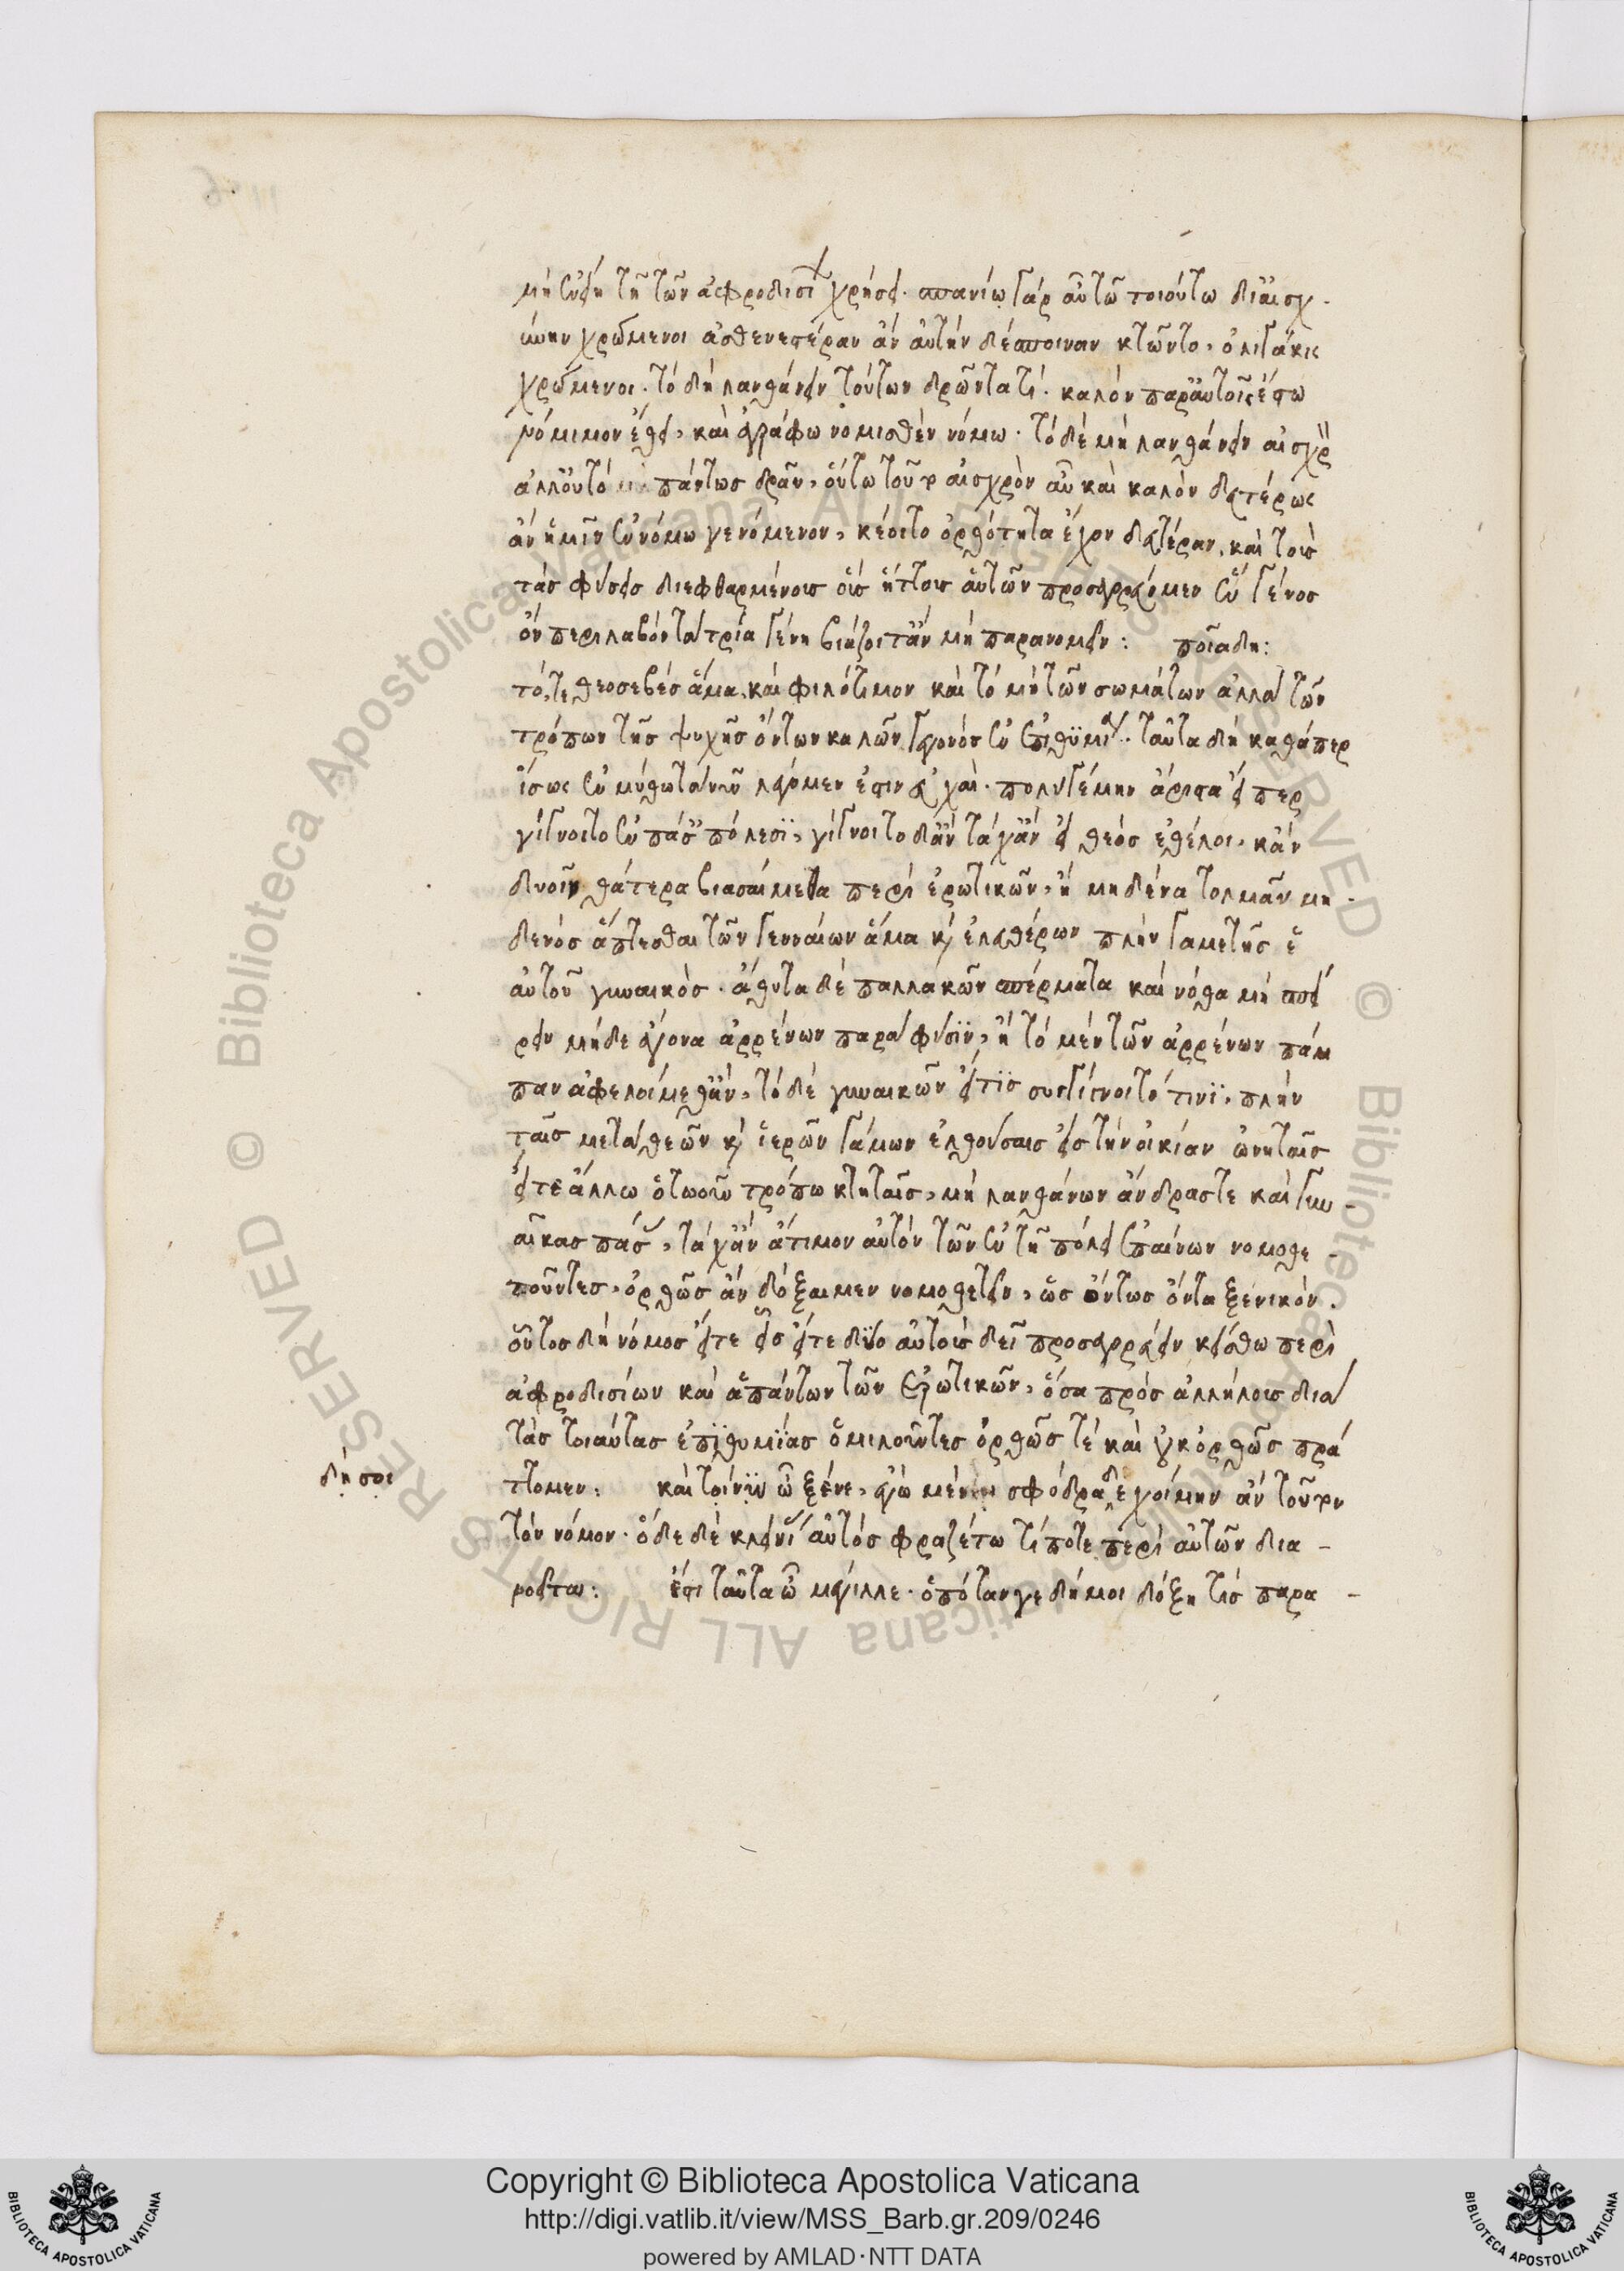 μὴ ἐνείη τῇ τῶν ἀφροδισίων χρήσει· σπανίω γὰρ αὖ τῶ τοιούτω δι' αἰσχ-
ύνην χρώμενοι ἀσθενεστέραν ἂν αὐτὴν δέσποιναν κτῶντο, ὀλιγάκις
χρώμενοι. τὸ δὴ λανθάνειν τούτων δρῶντά τι καλὸν παρ' αὐτοῖς ἔστω
νόμιμον ἔθει, καὶ ἀγράφω νομισθὲν νόμω· τὸ δὲ μὴ λανθάνειν αἰσχρὸν
ἀλλ' οὐ τὸ μὴ πάντως δρᾶν, οὕτω τοῦτο αἰσχρὸν αὖ καὶ καλὸν δευτέρως
ἂν ἡμῖν ἐν νόμω γενόμενον, κέοιτο ὀρθότητα ἔχον δευτέραν, καὶ τοὺς
τὰς φύσεις διεφθαρμένους οὓς ἥττους αὑτῶν προσαγορεύομεν ἓν γένος
ὂν περιλαβόντα τρία γένη βιάζοιτ' ἂν μὴ παρανομεῖν: ποῖα δή:
τό,τε θεοσεβὲς ἅμα καὶ φιλότιμον καὶ τὸ μὴ τῶν σωμάτων ἀλλὰ τῶν
τρόπων τῆς ψυχῆς ὄντων καλῶν γεγονὸς ἐν ἐπιθυμία. ταῦτα δὴ καθάπερ
ἴσως ἐν μύθω τὰ νῦν λεγόμεν' ἐστὶν εὐχαί. πολύ γε μὴν ἄριστα εἴ περ
γίγνοιτο ἐν πάσαις πόλεσι, γίγνοιτο δ' ἂν τάχ' ἂν εἰ θεὸς ἐθέλοι, κἂν
δυοῖν θάτερα βιασαίμεθα περὶ ἐρωτικῶν, ἢ μηδένα τολμᾶν μη-
δενὸς ἅπτεσθαι τῶν γενναίων ἅμα καὶ ἐλευθέρων πλὴν γαμετῆς ἑ
αυτοῦ γυναικός. ἄθυτα δὲ παλλακῶν σπέρματα καὶ νόθα μὴ σπεί
ρειν μήδε ἄγονα ἀρρένων παρὰ φύσιν, ἢ τὸ μὲν τῶν ἀρρένων πάμ
παν ἀφελοίμεθ' ἄν, τὸ δὲ γυναικῶν εἴ τις συγγίγνοιτό τινι, πλὴν
ταῖς μετὰ θεῶν καὶ ἱερῶν γάμων ἐλθούσαις εἰς τὴν οἰκίαν ὠνηταῖς
εἴτε ἄλλω ὁτωοῦν τρόπω κτηταῖς, μὴ λανθάνων ἄνδρας τε καὶ γυν-
αῖκας πάσας, τάχ' ἂν ἄτιμον αὐτὸν τῶν ἐν τῇ πόλει ἐπαίνων νομοθε-
τοῦντες, ὀρθῶς ἂν δόξαιμεν νομοθετεῖν, ὡς ὄντως ὄντα ξενικόν.
οὗτος δὴ νόμος εἴτε εἷς εἴτε δύο αὐτοὺς δεῖ προσαγορεύειν κείσθω περὶ
ἀφροδισίων καὶ ἁπάντων τῶν ἐρωτικῶν, ὅσα πρὸς ἀλλήλους διὰ
τὰς τοιαύτας ἐπιθυμίας ὁμιλοῦντες ὀρθῶς τὲ καὶ οὐκ ὀρθῶς πρά
δή σοι
ττομεν: καὶ τοίνυν ὦ ξένε, ἐγὼ μὲν σφόδρα δεχοίμην ἂν τοῦτον
τὸν νόμον. ὅδε δὲ κλεινί αὐτὸς φραζέτω τί ποτε περὶ αὐτῶν δια-
νοεῖται: ἔσται ταῦτα ὦ μέγιλλε. ὁπόταν γε δή μοι δόξη τίς παρα-
Copyright © Biblioteca Apostolica Vaticana
http://digi.vatlib.it/view/MSS_Barb.gr.209/0246
powered by AMLAD·NTT DATA